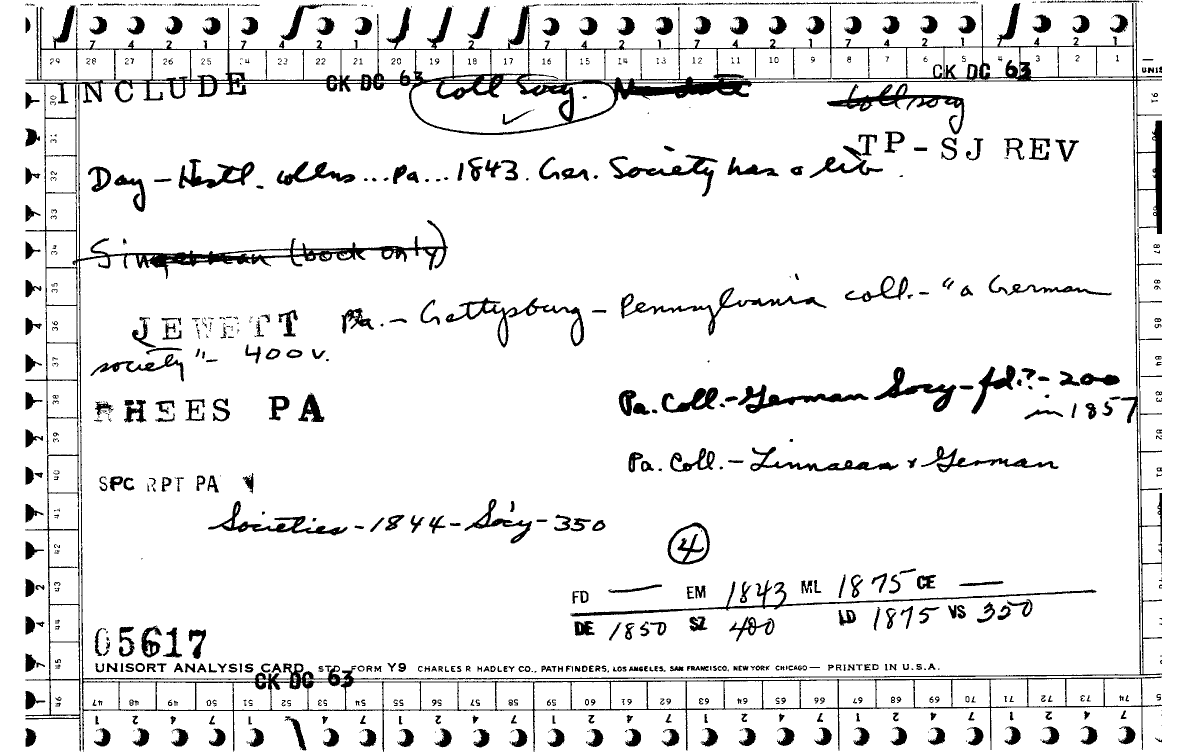 7 4 2 1 7 4 2 1 7 4 2 1 7 4 2 1 7 4 2 1 7 4 2 1 7 4 2 1
29 28 27 26 25 24 23 22 21 20 19 18 17 16 15 14 13 12 11 10 9 8 7 6 5 4 3 2 1 UNIS
INCLUDE CK DC 63 Coll Socy. ✓ CK DC 63
Coll socy
TP-SJ REV
Day - Histl. collns... Pa... 1843. Ger. Society has a lib.
Singerman (book only)
JEWETT Pa. - Gettysburg - Pennsylvania coll. - "a German
society" - 400 v.
RHEES PA Pa. Coll. - German Socy - fd.? - 200
in 1857
Pa. Coll. - Linnaean & German
SPC RPT PA
Societies - 1844 - Socy - 350
4
FD — EM 1843 ML 1875 CE —
DE 1850 SZ 400 LD 1875 VS 350
05617
UNISORT ANALYSIS CARD STD. FORM Y9 CHARLES R HADLEY CO., PATHFINDERS, LOS ANGELES, SAN FRANCISCO, NEW YORK CHICAGO — PRINTED IN U.S.A.
CK DC 63
47 48 49 50 51 52 53 54 55 56 57 58 59 60 61 62 63 64 65 66 67 68 69 70 71 72 73 74
1 2 4 7 1 2 4 7 1 2 4 7 1 2 4 7 1 2 4 7 1 2 4 7 1 2 4 7